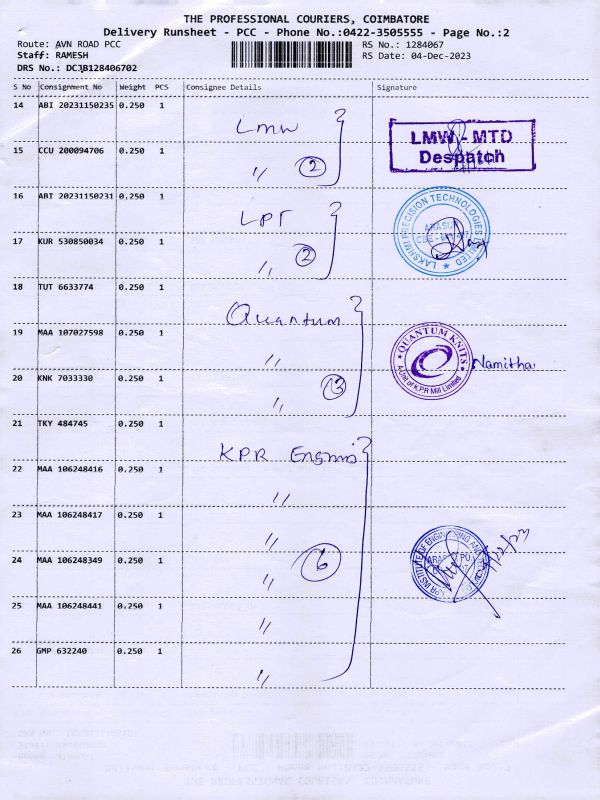 THE PROFESSIONAL COURIERS, COIMBATORE
Delivery Runsheet - PCC - Phone No.:0422-3505555 - Page No.:2
Route: AVN ROAD PCC
RS No.: 1284067
Staff: RAMESH
RS Date: 04-Dec-2023
DRS No.: DCJB128406702
S No Consignment No Weight PCS Consignee Details Signature
14 ABI 20231150235 0.250 1 LMW
LMW - MTD
Despatch
15 CCU 200094706 0.250 1 〃 2
16 ABI 20231150231 0.250 1 LPT
LAKSHMI PRECISION TECHNOLOGIES LIMITED
17 KUR 530850034 0.250 1 〃 2
18 TUT 6633774 0.250 1 Quantum
19 MAA 107027598 0.250 1 〃
QUANTUM KNITS
A Unit of K.P.R Mill Limited
Namitha
20 KNK 7033330 0.250 1 〃 3
21 TKY 484745 0.250 1 KPR
22 MAA 106248416 0.250 1 〃
23 MAA 106248417 0.250 1 〃
24 MAA 106248349 0.250 1 〃 6
25 MAA 106248441 0.250 1 〃
26 GMP 632240 0.250 1 〃